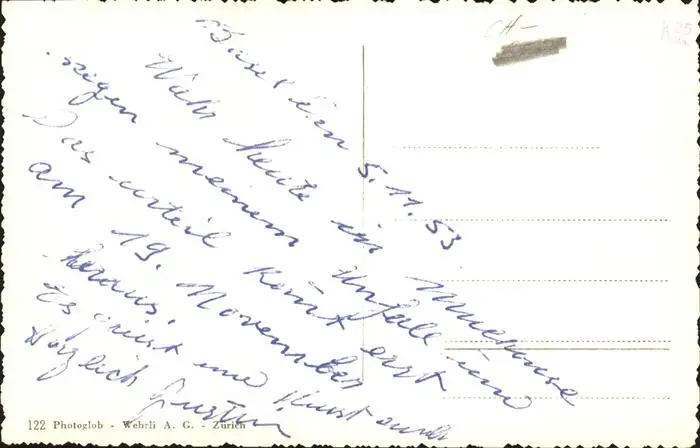 CH-
Basel den 5.11.53
Wahr heute in Mulhouse
wegen meinem Unfall und
Das urteil kömt erst
am 19. November
heraus.
Es grüst und küst euch
Herzlich Gustav
122 Photoglob - Wehrli A. G. - Zürich